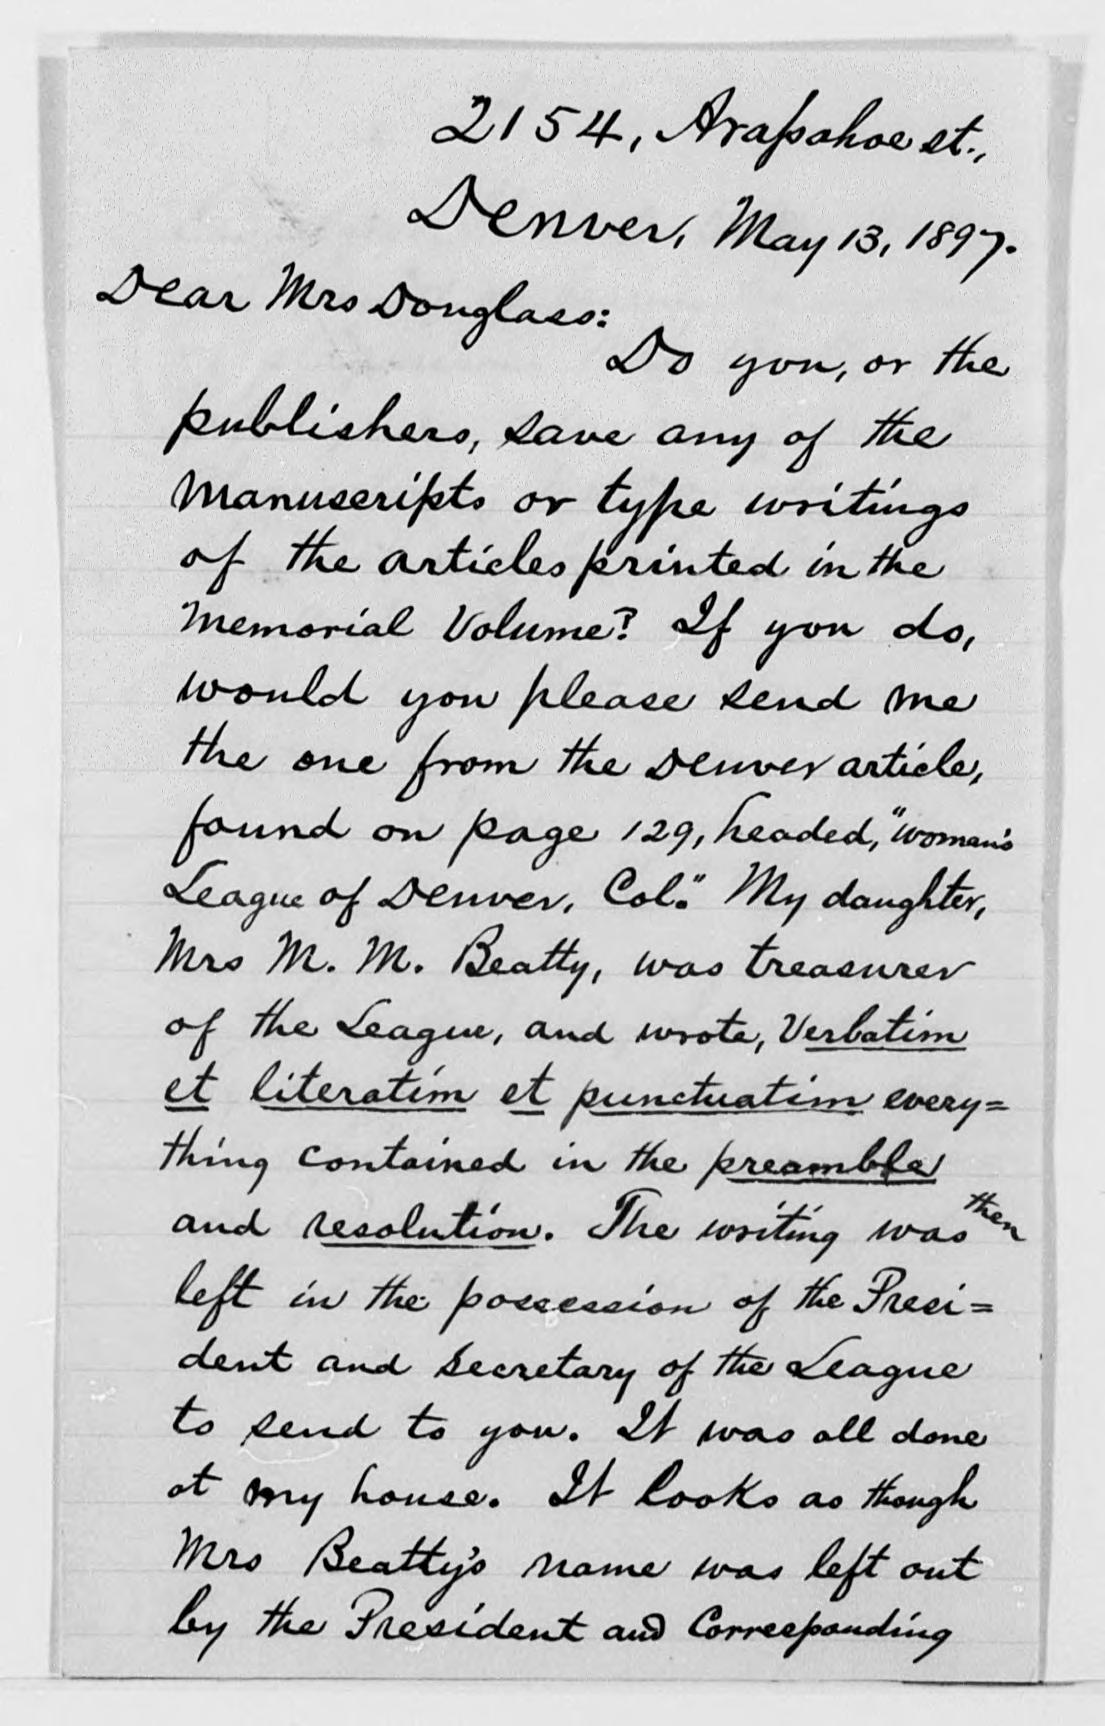 2154, Arapahoe st.,
Denver, May 13, 1897.
Dear Mrs Douglass:
Do you, or the
publishers, save any of the
manuscripts or type writings
of the articles printed in the
Memorial Volume? If you do,
would you please send me
the one from the Denver article,
found on page 129, headed, "Woman's
League of Denver, Col." My daughter,
Mrs M. M. Beatty, was treasurer
of the League, and wrote, Verbatim
et literatim et punctuatim every=
thing contained in the preamble
and resolution. The writing was then
left in the possession of the Presi=
dent and Secretary of the League
to send to you. It was all done
at my house. It looks as though
Mrs Beatty's name was left out
by the President and Corresponding